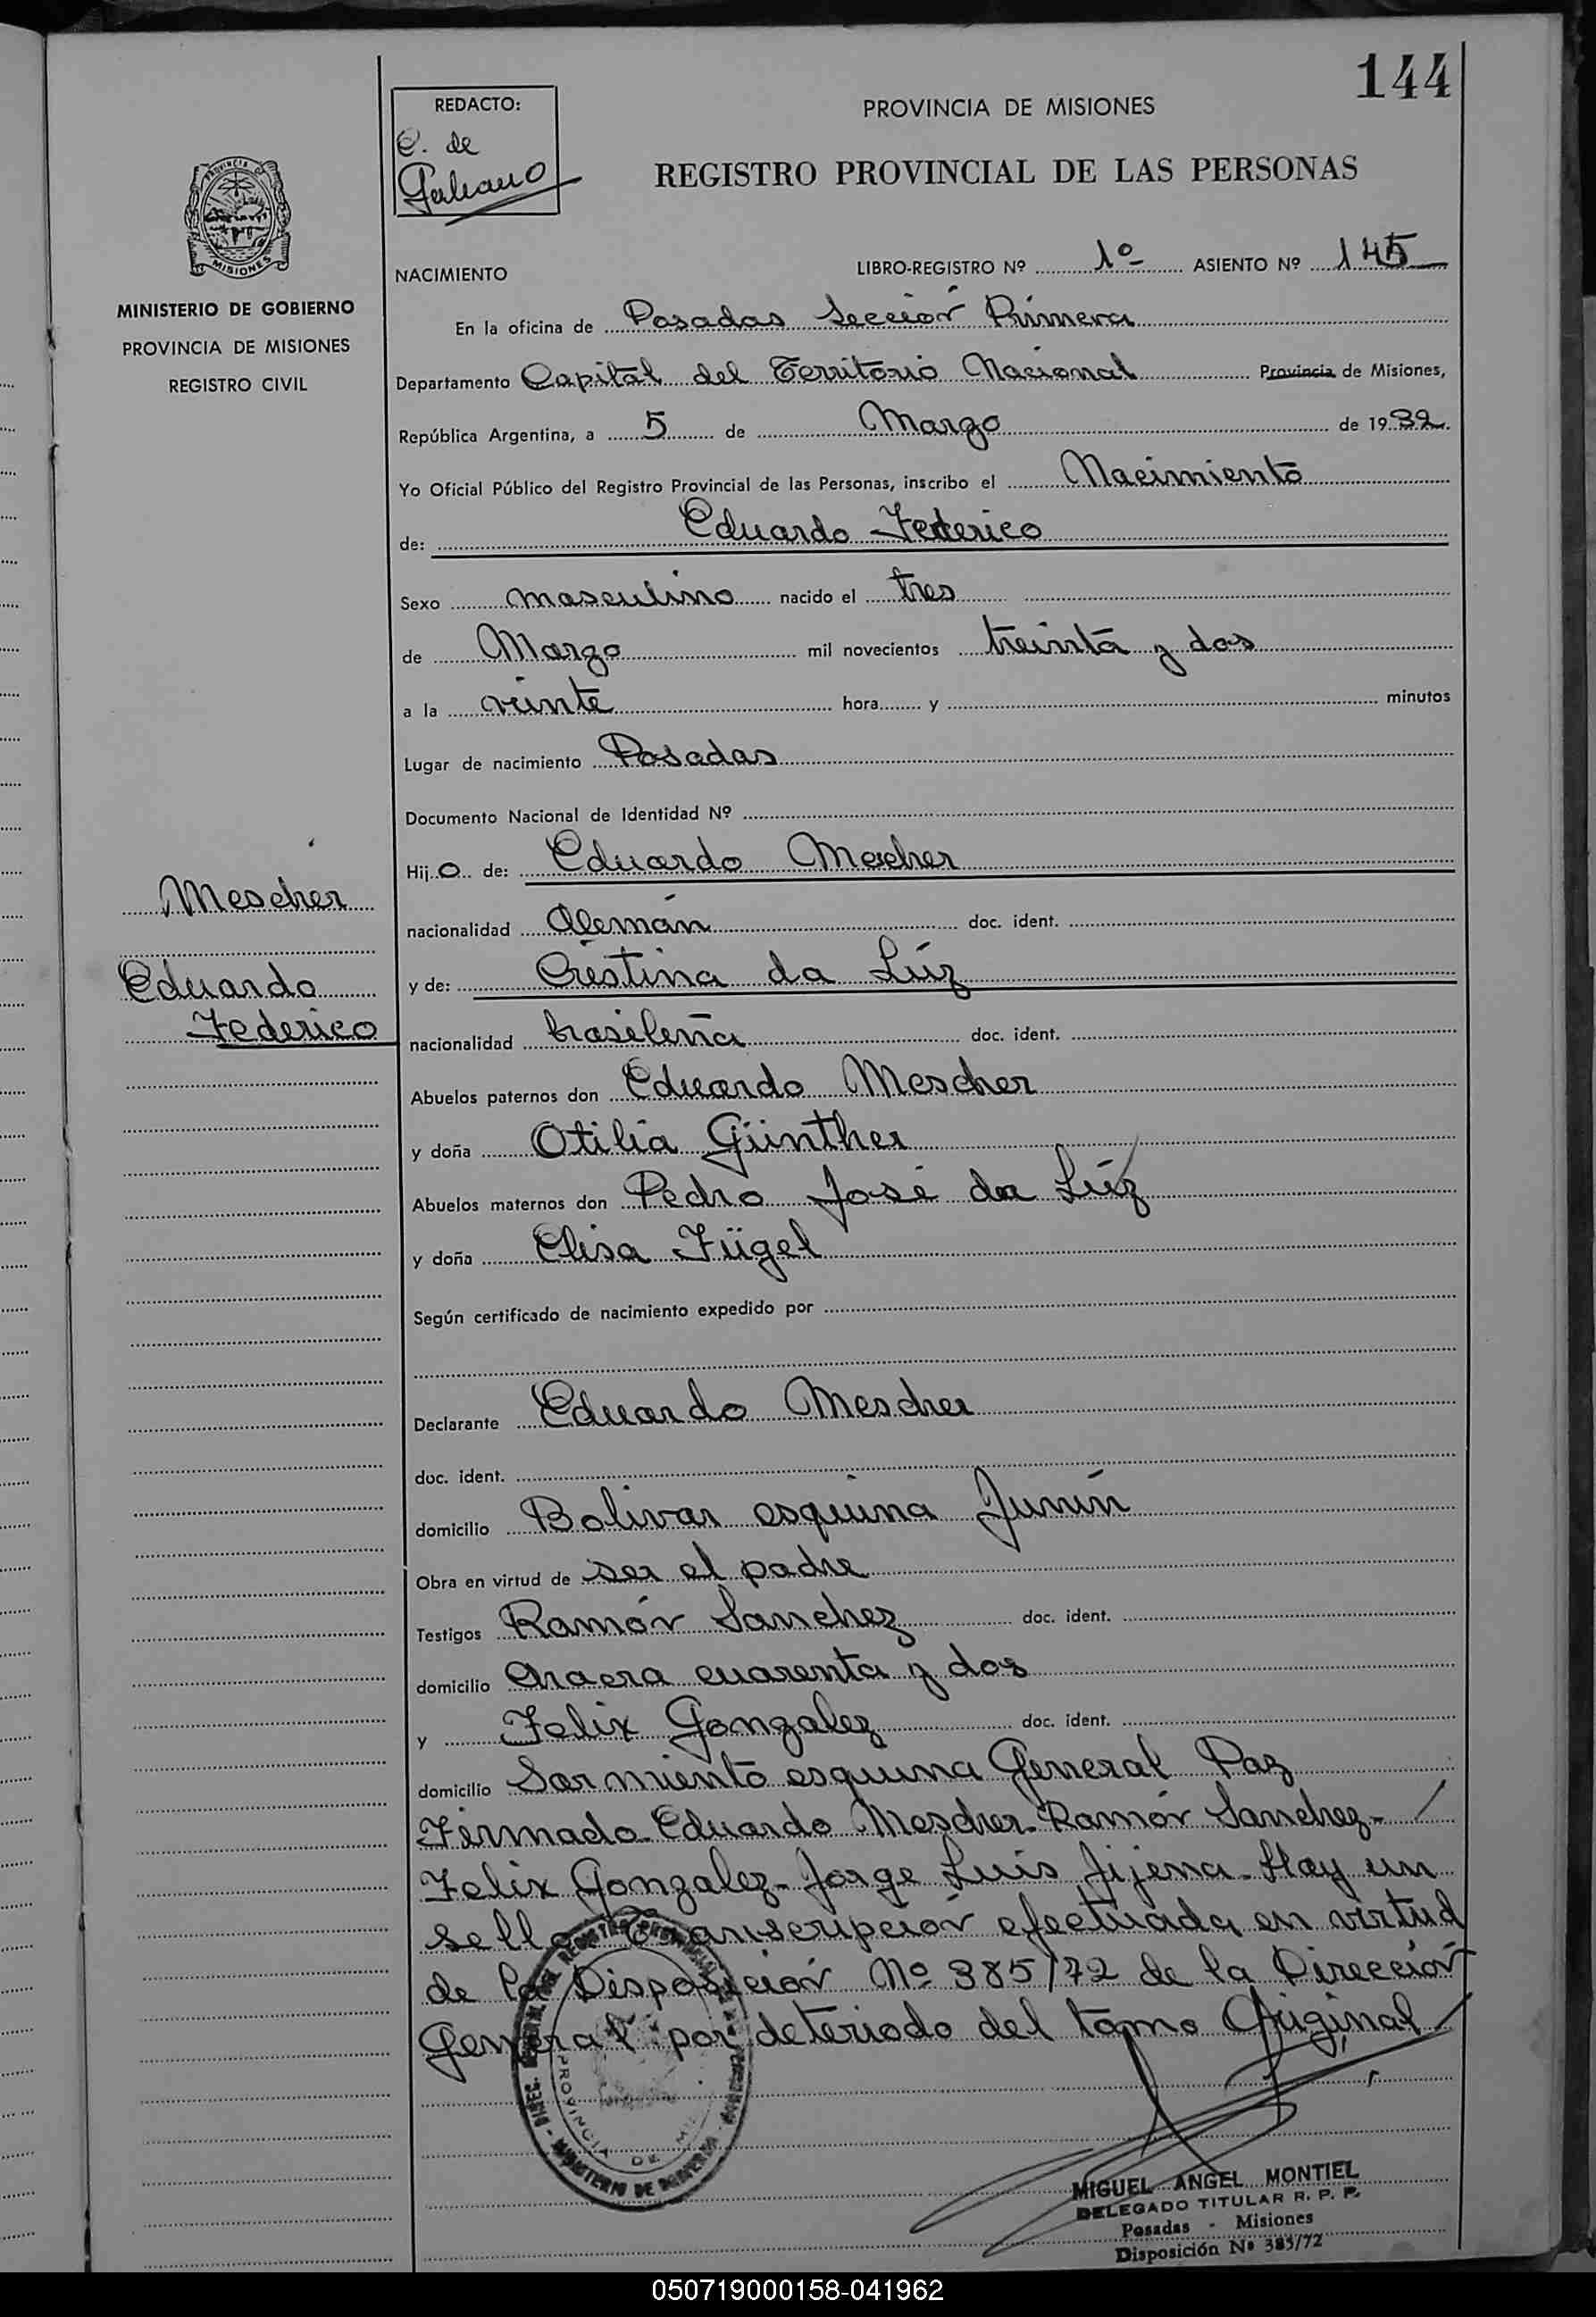 144
REDACTO:
C. de
Galeano
PROVINCIA DE MISIONES
REGISTRO PROVINCIAL DE LAS PERSONAS
PROVINCIA DE
MISIONES
MINISTERIO DE GOBIERNO
PROVINCIA DE MISIONES
REGISTRO CIVIL
NACIMIENTO LIBRO-REGISTRO Nº 1º ASIENTO Nº 145
En la oficina de Posadas Sección Primera
Departamento Capital del Territorio Nacional Provincia de Misiones,
República Argentina, a 5 de Marzo de 1932.
Yo Oficial Público del Registro Provincial de las Personas, inscribo el Nacimiento
de: Eduardo Federico
Sexo masculino nacido el tres
de Marzo mil novecientos treinta y dos
a la veinte hora y minutos
Lugar de nacimiento Posadas
Documento Nacional de Identidad Nº
Hijo de: Eduardo Mescher
Mescher
nacionalidad Alemán doc. ident.
Eduardo
Federico
y de: Cristina da Lúz
nacionalidad brasileña doc. ident.
Abuelos paternos don Eduardo Mescher
y doña Otilia Günther
Abuelos maternos don Pedro José da Lúz
y doña Elisa Fügel
Según certificado de nacimiento expedido por
Declarante Eduardo Mescher
doc. ident.
domicilio Bolivar esquina Junín
Obra en virtud de ser el padre
Testigos Ramón Sanchez doc. ident.
domicilio cuarenta y dos
y Felix Gonzalez doc. ident.
domicilio Sarmiento esquina General Paz
Firmado Eduardo Mescher-Ramón Sanchez-
Felix Gonzalez-Jorge Luis Jijena-Hay un
sello Transcripción efectuada en virtud
de la Disposición Nº 385/72 de la Dirección
General por deteriodo del tomo Original
MIGUEL ANGEL MONTIEL
DELEGADO TITULAR R. P. P.
Posadas - Misiones
Disposición Nº 385/72
050719000158-041962